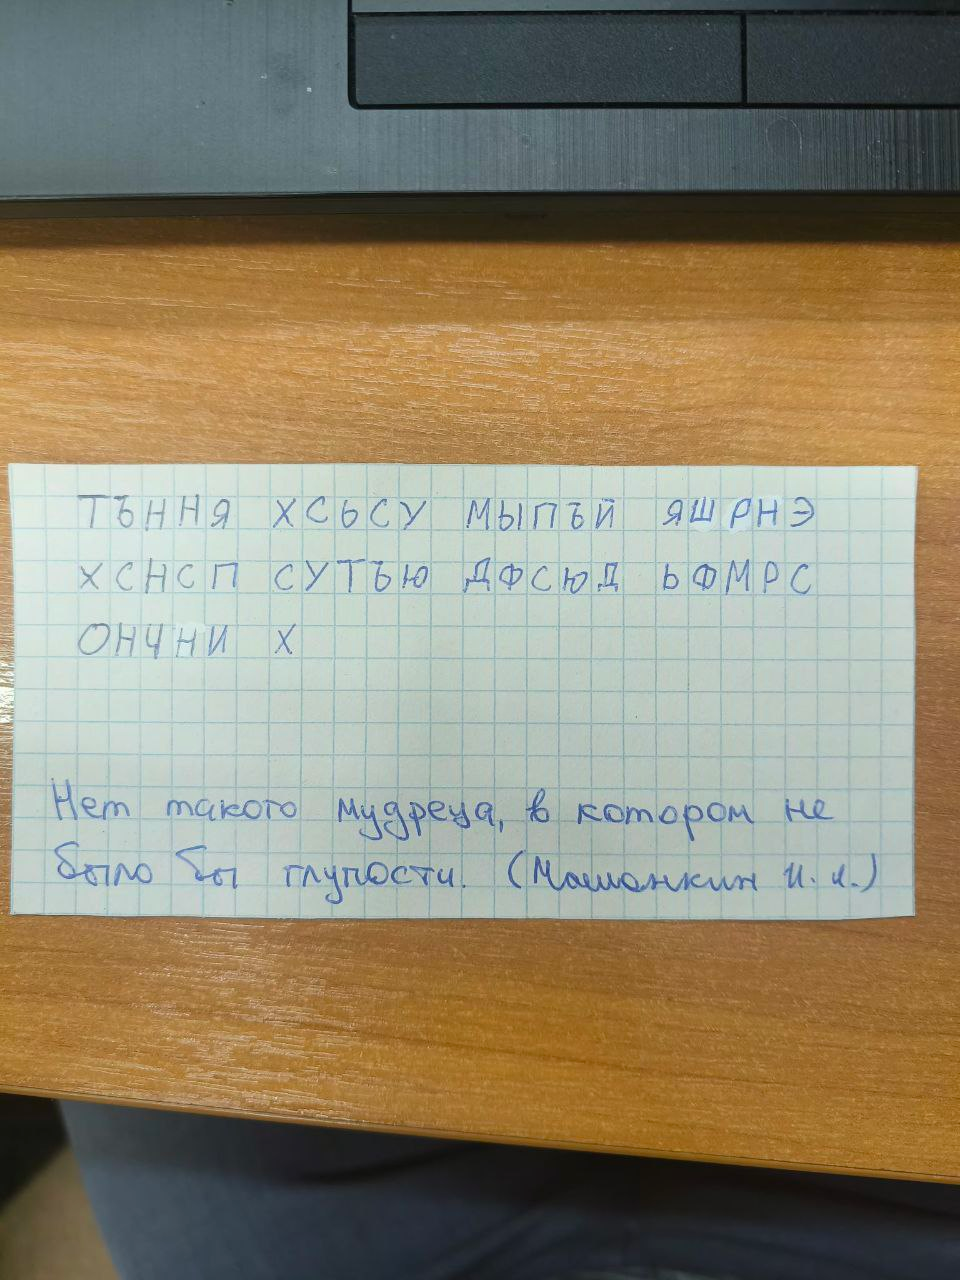 ТЪННЯ ХСЬСУ МЫПЪЙ ЯШРНЭ
ХСНСП СУТЪЮ ДФСЮД ЬФМРС
ОНЧНИ Х
Нет такого мудреца, в котором не
было бы глупости. (Машонкин И. И.)